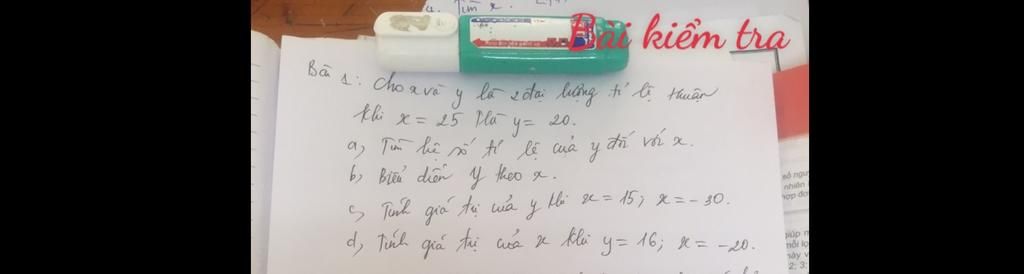 a. Tìm x.
Bài kiểm tra
Bài 1: Cho x và y là 2 đại lượng tỉ lệ thuận
khi x = 25 thì y = 20.
a, Tìm hệ số tỉ lệ của y đối với x.
b, Biểu diễn y theo x.
c, Tính giá trị của y khi x = 15; x = -30.
d, Tính giá trị của x khi y = 16; x = -20.
số ngu
nhiên
hợp đơ
giúp n
mỗi lọ
này v
2; 3;